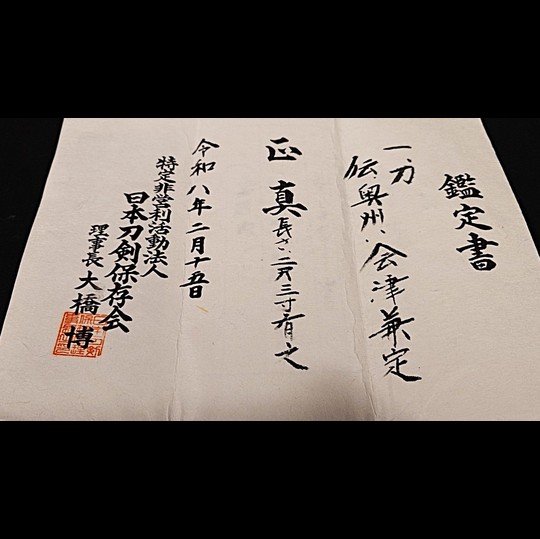 鑑定書
一、刀
伝、奥州、会津兼定
正真 長さ、二尺三寸有之
令和八年二月十五日
特定非営利活動法人
日本刀剣保存会
理事長 大橋 博